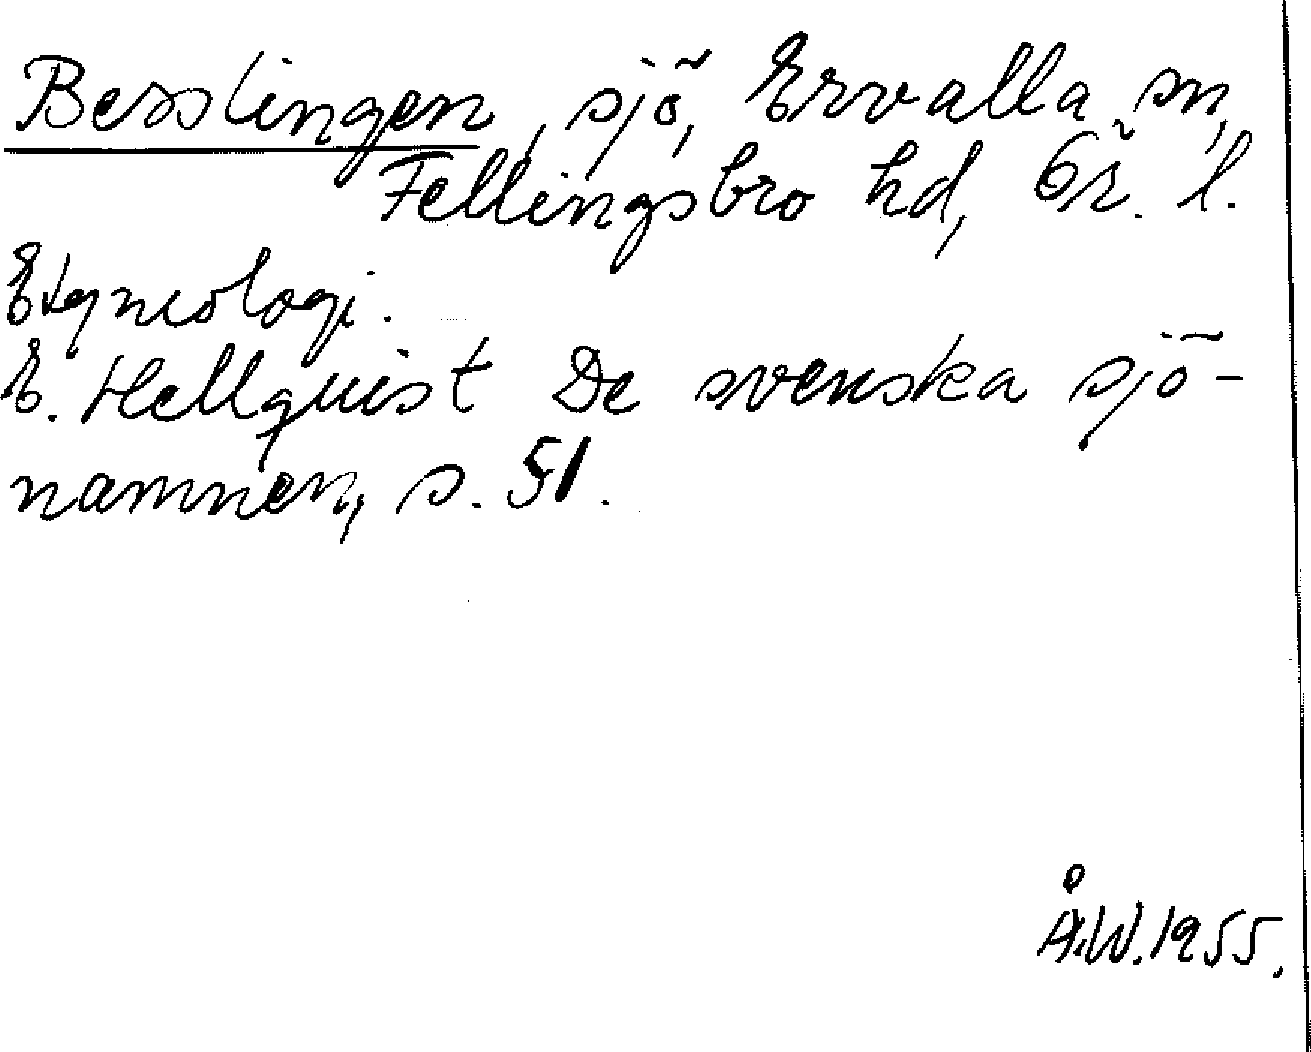 Besslingen, sjö, Ervalla sn,
Fellingsbro hd, Ör. l.
Etymologi.
E. Hellquist De svenska sjö-
namnen, s. 51.
Å.W. 1955.